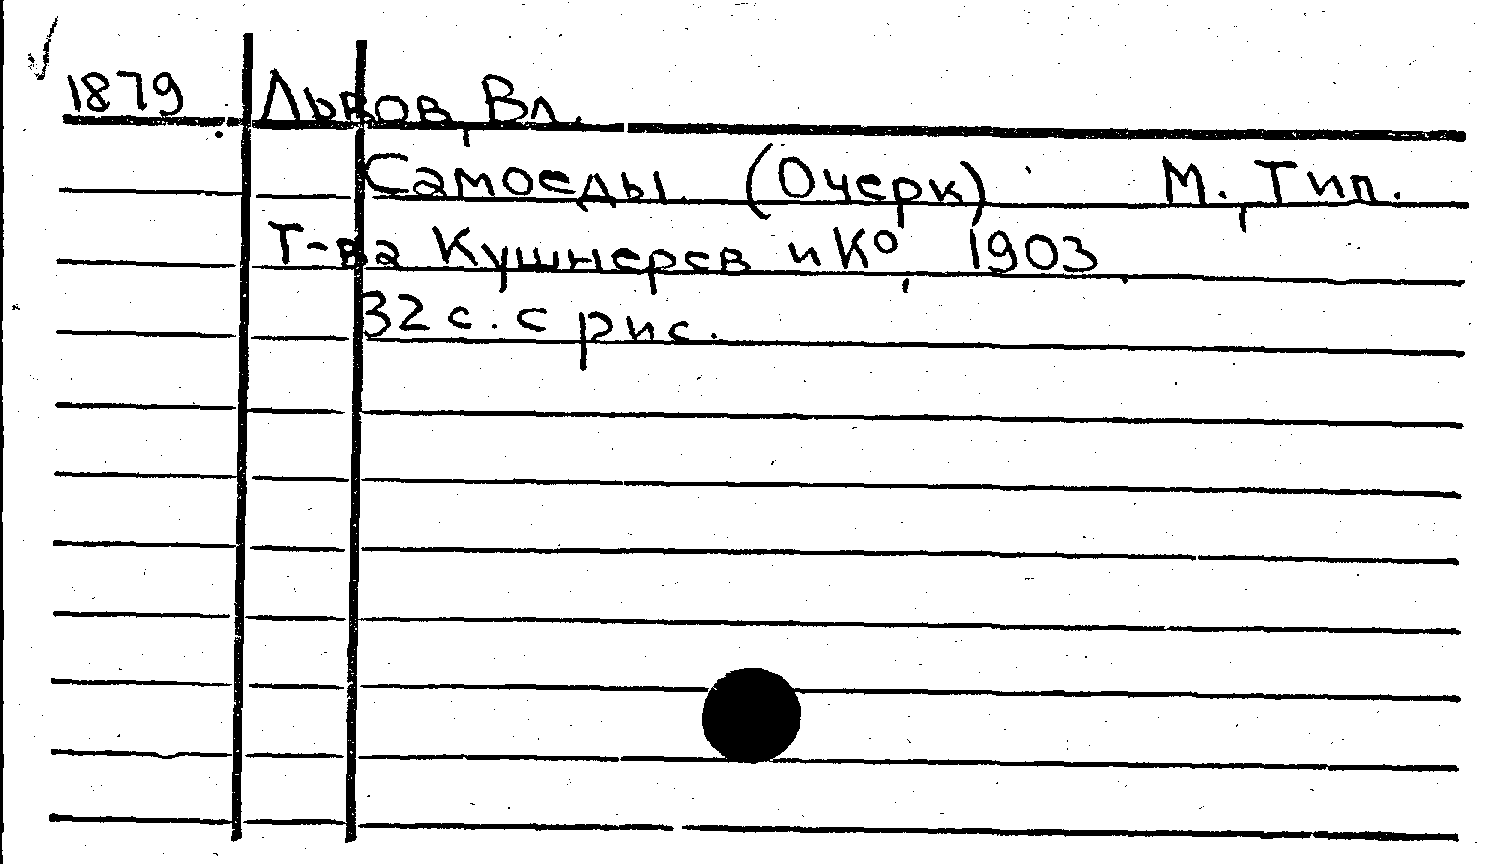 1879 Львов, Вл.
Самоеды. (Очерк) М., Тип.
Т-ва Кушнерев и Ко, 1903.
32 с. с рис.